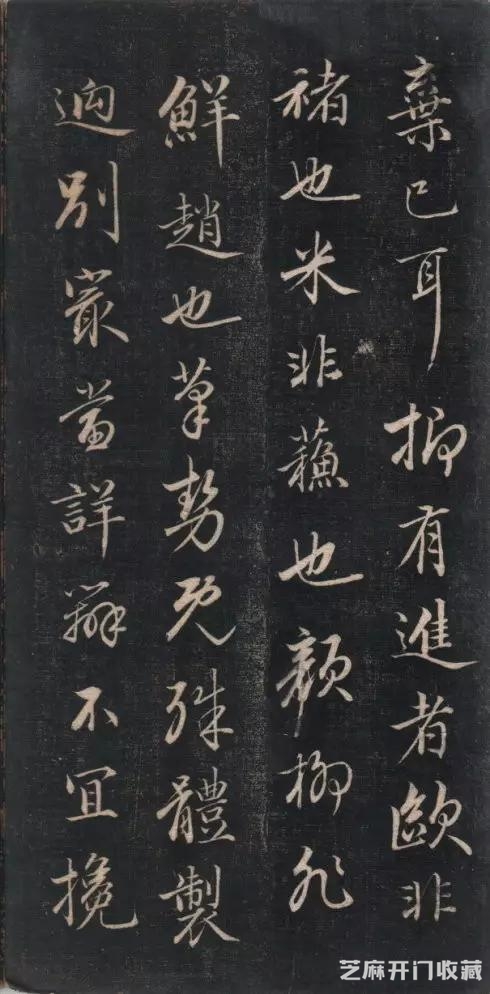 棄已耳抑有進者歐非
褚也米非蘓也顏柳非
鮮趙也筆勢既殊體製
迥別寂當詳辨不宜攙
芝麻开门收藏